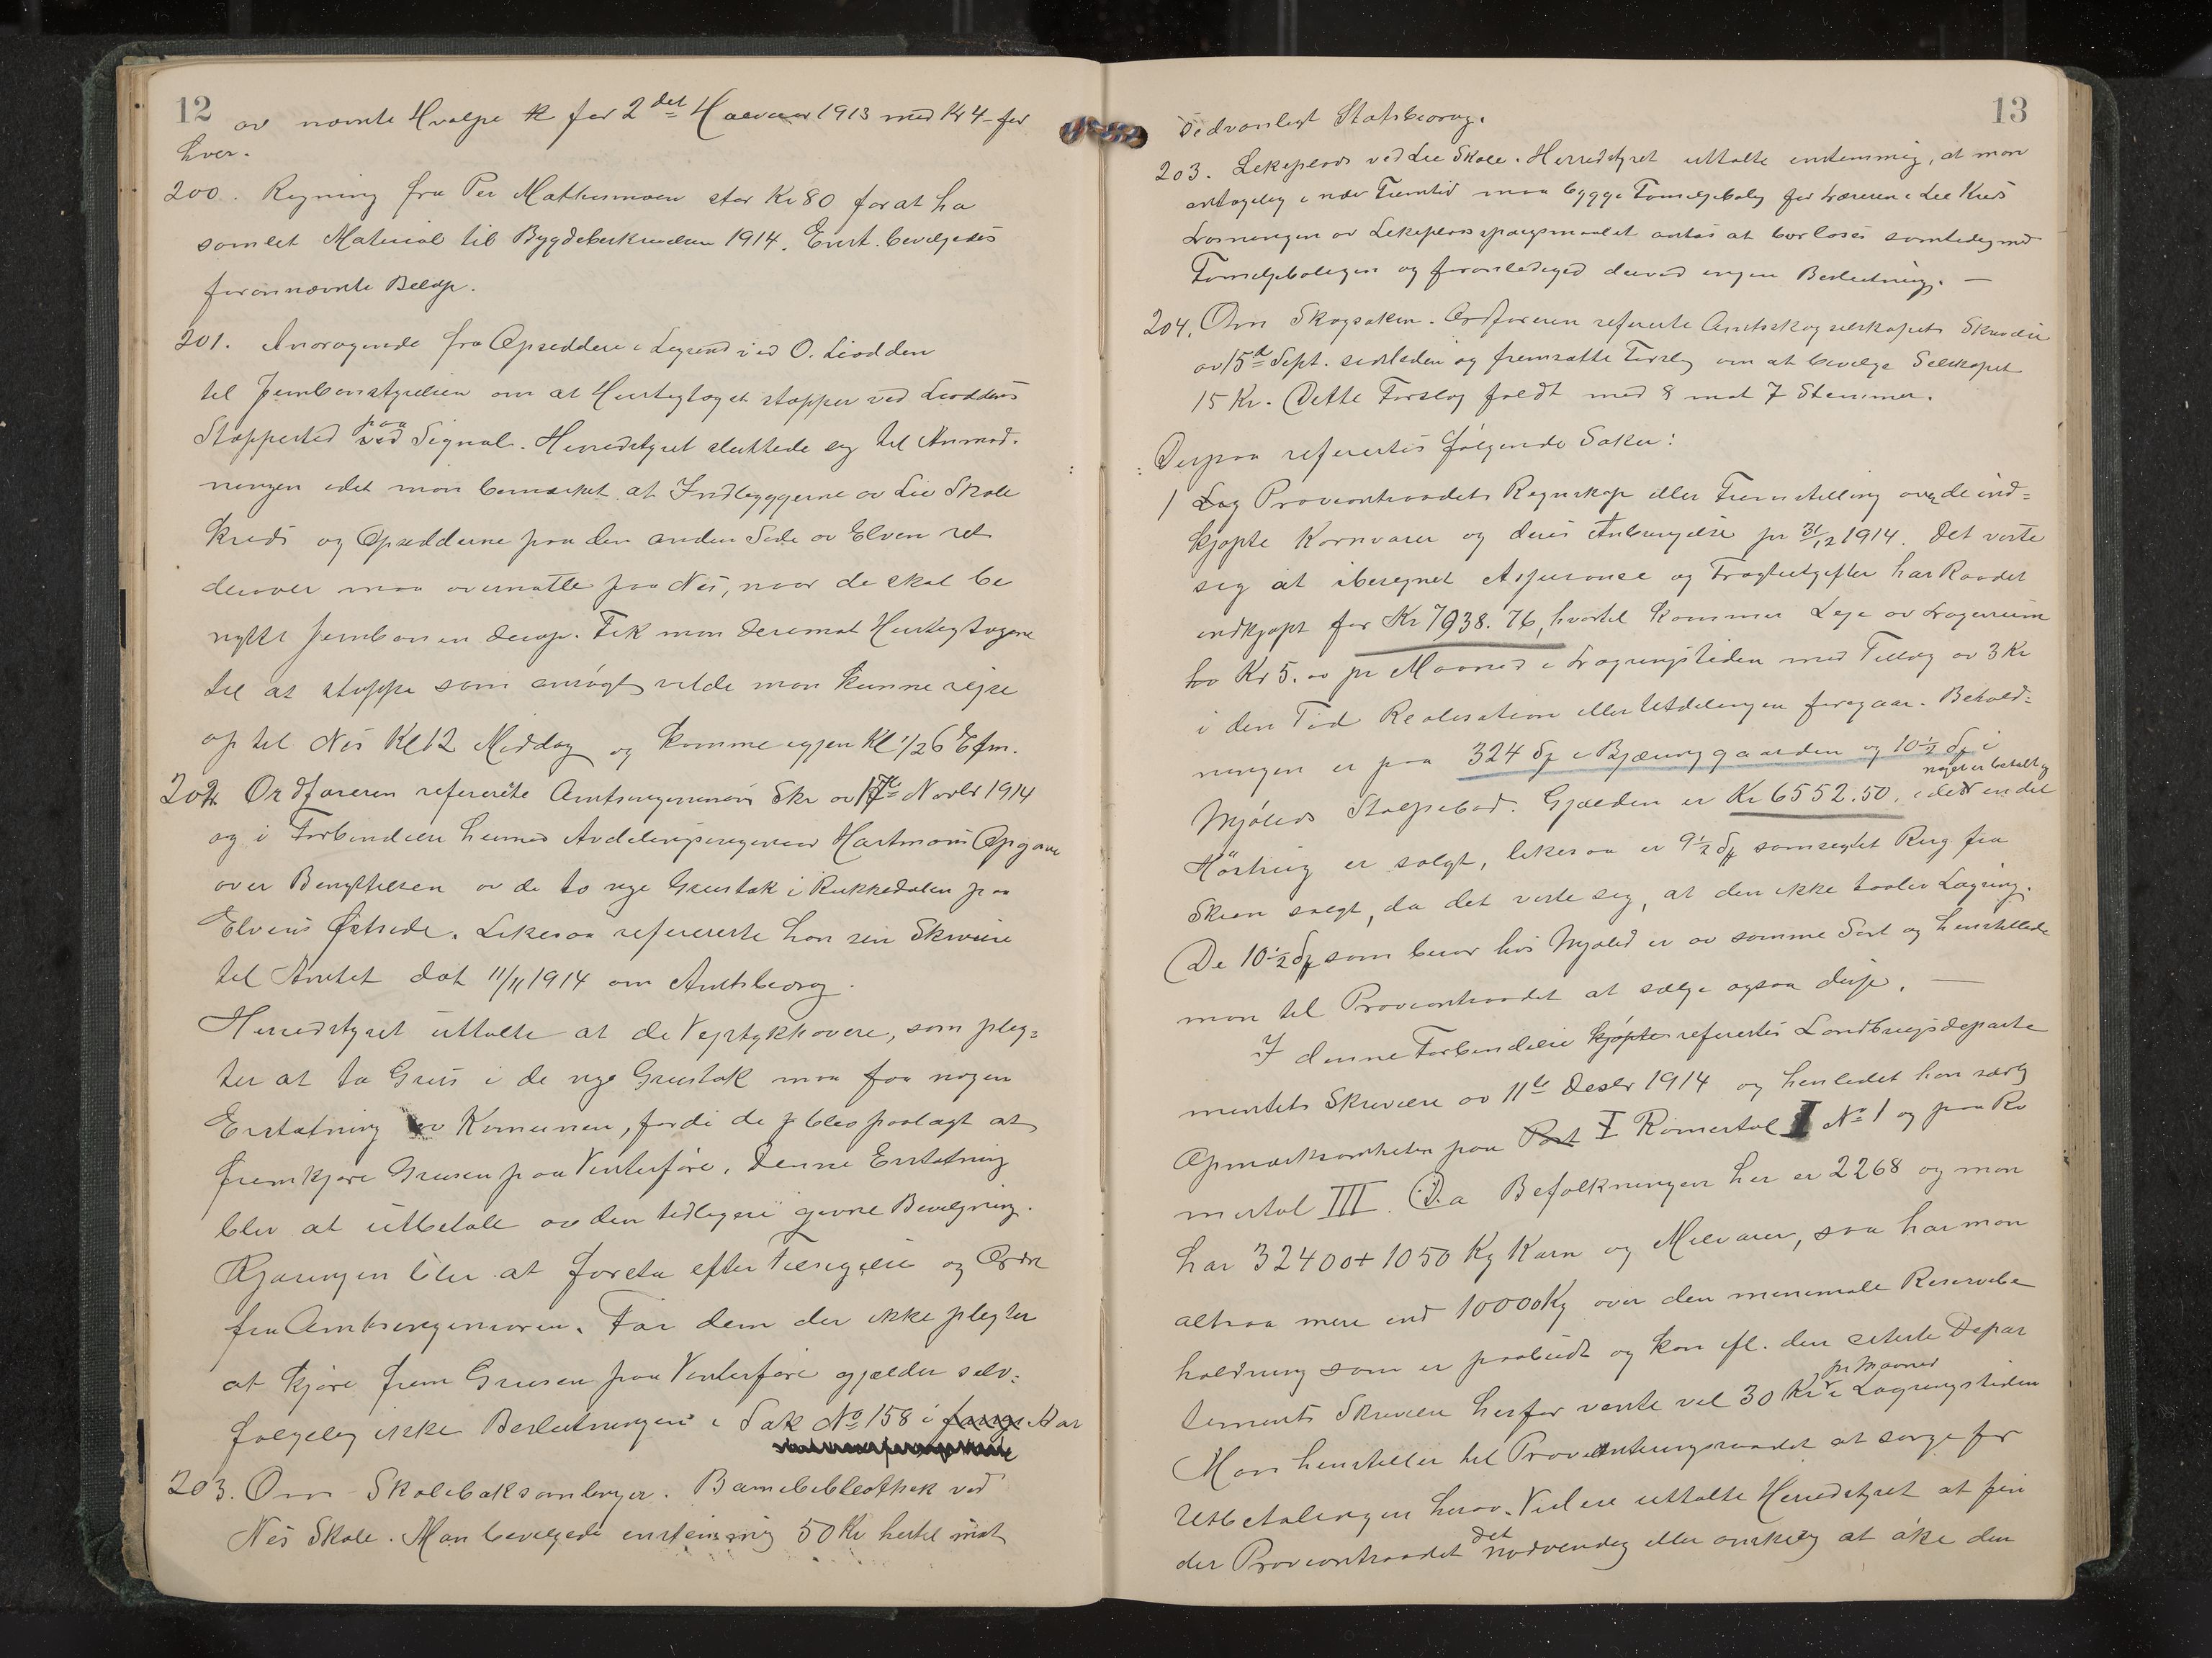 12
av nævnte Hvalpe for 2det Halvaar 1913 med Kr 4 - for
hver.
200. Regning fra Per Mathismoen stor Kr 80 for at ha
samlet Material til Bygdebeskrivelsen 1914. Enst. bevilgedes
forannævnte Beløp.
201. Andragende fra Opsiddere i Legrend ved O. Liodden
til Jernbanestyrelsen om at Hurtigtoget stopper ved Lioddens
Stoppested paa ved Signal. Herredstyret sluttede sig til Anmod-
ningen idet man bemærket at Indbyggerne av Lie Skole
kreds og Opsidderne paa den anden Side av Elven ret
derover maa overnatte paa Nes, naar de skal be
nytte Jernbanen derop. Fik man derimot Hurtigtogene
til at stoppe som ansøgt vilde man kunne rejse
op til Nes Kl 12 Middag og komme igjen Kl 1/2 6 Efm.
202. Ordføreren refererte Amtsingeniørens Skr av 17de Novbr 1914
og i Forbindelse hermed Avdelingsingeniør Hartmans Opgave
over Benyttelsen av de to nye Grustak i Rukkedalen paa
Elvens Østside. Likesaa refererte han sin Skrivelse
til Amtet dat 11/11 1914 om Amtsbidrag.
Herredstyret uttalte at de Vejstykkhavere, som pleg-
ter at ta Grus i de nye Grustak maa faa nogen
Erstatning av Kommunen, fordi de blev paalagt at
fremkjøre Grusen paa Vinterføre. Denne Erstatning
blir at utbetale av den tidligere givne Bevilgning.
Kjøringen blir at foreta efter Tilsigelse og Ordre
fra Amtsingeniøren. For dem der ikke plegter
at kjøre frem Grusen paa Vinterføre gjælder selv-
følgelig ikke Beslutningen i Sak No 158 i forrige Aar
203. Om Skolebaksamlinger. Barnebibliothek ved
Nes Skole. Man bevilgede enstemmig 50 Kr hertil mot
13
sedvanligt Statsbidrag.
203. Lekeplads ved Lie Skole. Herredstyret uttalte enstemmig, at man
antagelig i nær Fremtid maa bygge Familjebolig for Læreren i Lie Kreds
Løsningen av Lekeplasspørgsmaalet antas at bør løses samtidig med
Familjeboligen og foranledigede derved ingen Beslutning. —
204. Om Skogsaken. Ordføreren refererte Amtsskogselskapets Skrivelse
av 15de Sept. sidstleden og fremsatte Forslag om at bevilge Selskapet
15 Kr. Dette Forslag faldt med 8 mot 7 Stemmer.
Derpaa refertes følgende Saker:
1 Lag Proviantraadets Regnskap eller Fremstilling over de ind-
kjøpte Kornvarer og deres Anbringelse pr 31/12 1914. Det viste
sig at iberegnet Assurance og Fragtutgifter har Raadet
indkjøpt for Kr 7938.76, hvortil kommer Leje av Lagerrum
Kr 5.00 pr Maaned i Lagringstiden med Tillæg av 3 Kr
i den Tid Realisation eller Utdelingen foregaar. Behold-
ningen er paa 324 Sj i Bjørnegaarden og 10 1/2 Sj i
noget er betalt og
Mjølids Stolpebod. Gjælden er Kr 6552.50. idet en del
Høstrug er solgt, likesaa er 9 1/2 Sj somsegtet Rug fra
Skien solgt, da det viste sig, at den ikke taaler Lagring.
De 10 1/2 Sj som beror hos Mjølid er av samme Sort og henstillede
man til Proviantraadet at sælge ogsaa disse. —
I denne Forbindelse kjøpte refertes Landbruksdeparte
mentets Skrivelse av 11te Desbr 1914 og henledet han særlig
Opmerksomheten paa Post I Romertal I No 1 og paa Ro
mertal III. Da Befolkningen her er 2268 og man
har 32400 + 1050 Kg Korn og Melvarer, saa har man
altsaa mere end 10000 Kg over den minimale Reservebe
holdning som er paabudt og kan ifl. den citerte Depar
pr Maaned
tements Skrivelse herfor vente vel 30 Kr i Lagringstiden
Man henstiller til Provianteringsraadet at sørge for
Utbetalingen herav. Videre uttalte Herredstyret at fin
der Proviantraadet det nødvendig eller ønskelig at øke den